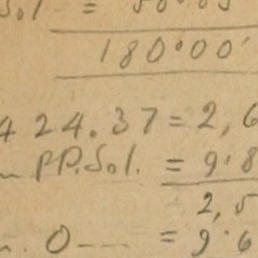 180.00'
424.37 = 2,6
PP.Sol. = 9.8
2,5
O---- = 9.6